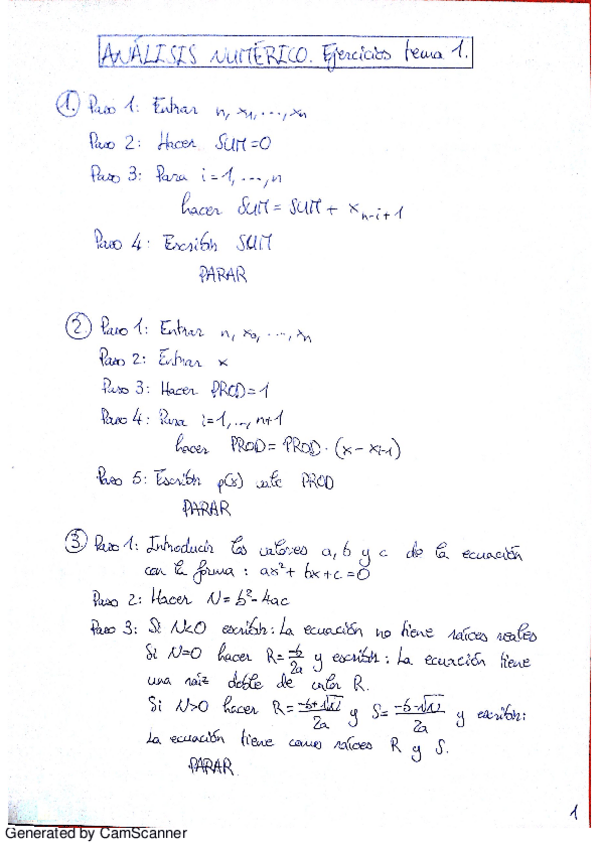 ANÁLISIS NUMÉRICO. Ejercicios tema 1.
1. Paso 1: Entrar n, x₁, ..., xₙ
Paso 2: Hacer SUM=0
Paso 3: Para i=1, ..., n
hacer SUM = SUM + x_{n-i+1}
Paso 4: Escribir SUM
PARAR
2. Paso 1: Entrar n, x₀, ..., xₙ
Paso 2: Entrar x
Paso 3: Hacer PROD=1
Paso 4: Para i=1, ..., n+1
hacer PROD = PROD · (x - x_{i-1})
Paso 5: Escribir p(x) vale PROD
PARAR
3. Paso 1: Introducir los valores a, b y c de la ecuación
con la forma: ax² + bx + c = 0
Paso 2: Hacer N = b² - 4ac
Paso 3: Si N<0 escribir: La ecuación no tiene raíces reales
Si N=0 hacer R = -b/2a y escribir: La ecuación tiene
una raíz doble de valor R.
Si N>0 hacer R = -b+√N/2a y S = -b-√N/2a y escribir:
La ecuación tiene como raíces R y S.
PARAR
1
Generated by CamScanner